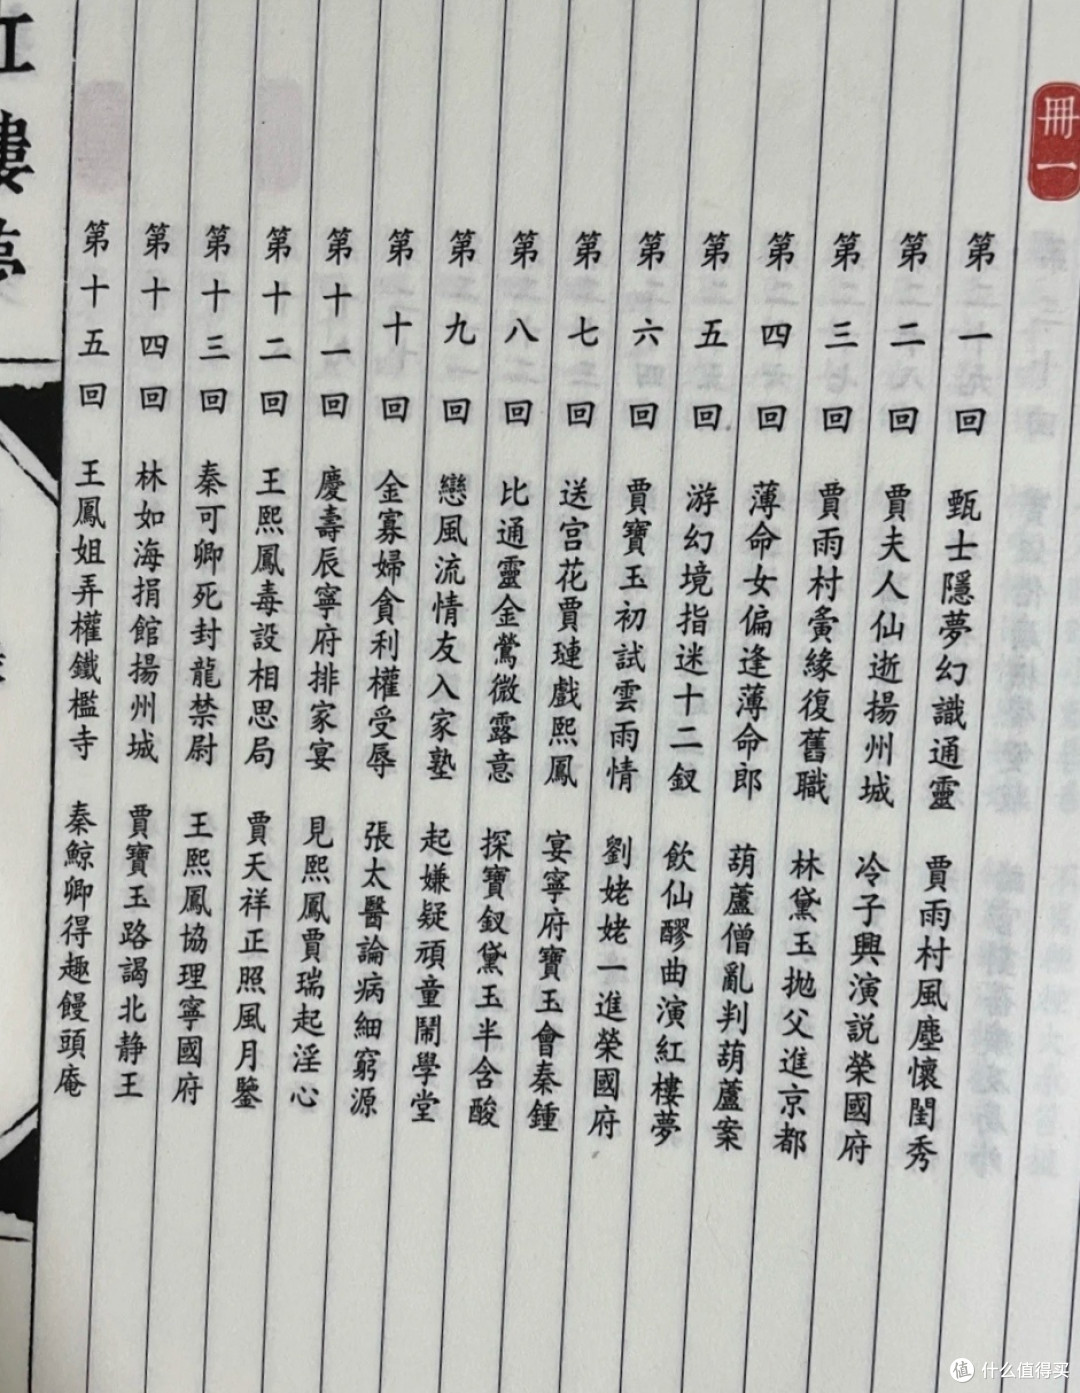 冊一
第一回 甄士隱夢幻識通靈 賈雨村風塵懷閨秀
第二回 賈夫人仙逝揚州城 冷子興演説榮國府
第三回 賈雨村夤緣復舊職 林黛玉拋父進京都
第四回 薄命女偏逢薄命郎 葫蘆僧亂判葫蘆案
第五回 游幻境指迷十二釵 飲仙醪曲演紅樓夢
第六回 賈寶玉初試雲雨情 劉姥姥一進榮國府
第七回 送宮花賈璉戲熙鳳 宴寧府寶玉會秦鍾
第八回 比通靈金鶯微露意 探寶釵黛玉半含酸
第九回 戀風流情友入家塾 起嫌疑頑童鬧學堂
第十回 金寡婦貪利權受辱 張太醫論病細窮源
第十一回 慶壽辰寧府排家宴 見熙鳳賈瑞起淫心
第十二回 王熙鳳毒設相思局 賈天祥正照風月鑒
第十三回 秦可卿死封龍禁尉 王熙鳳協理寧國府
第十四回 林如海捐館揚州城 賈寶玉路謁北静王
第十五回 王鳳姐弄權鐵檻寺 秦鯨卿得趣饅頭庵
紅樓夢
值 什么值得买